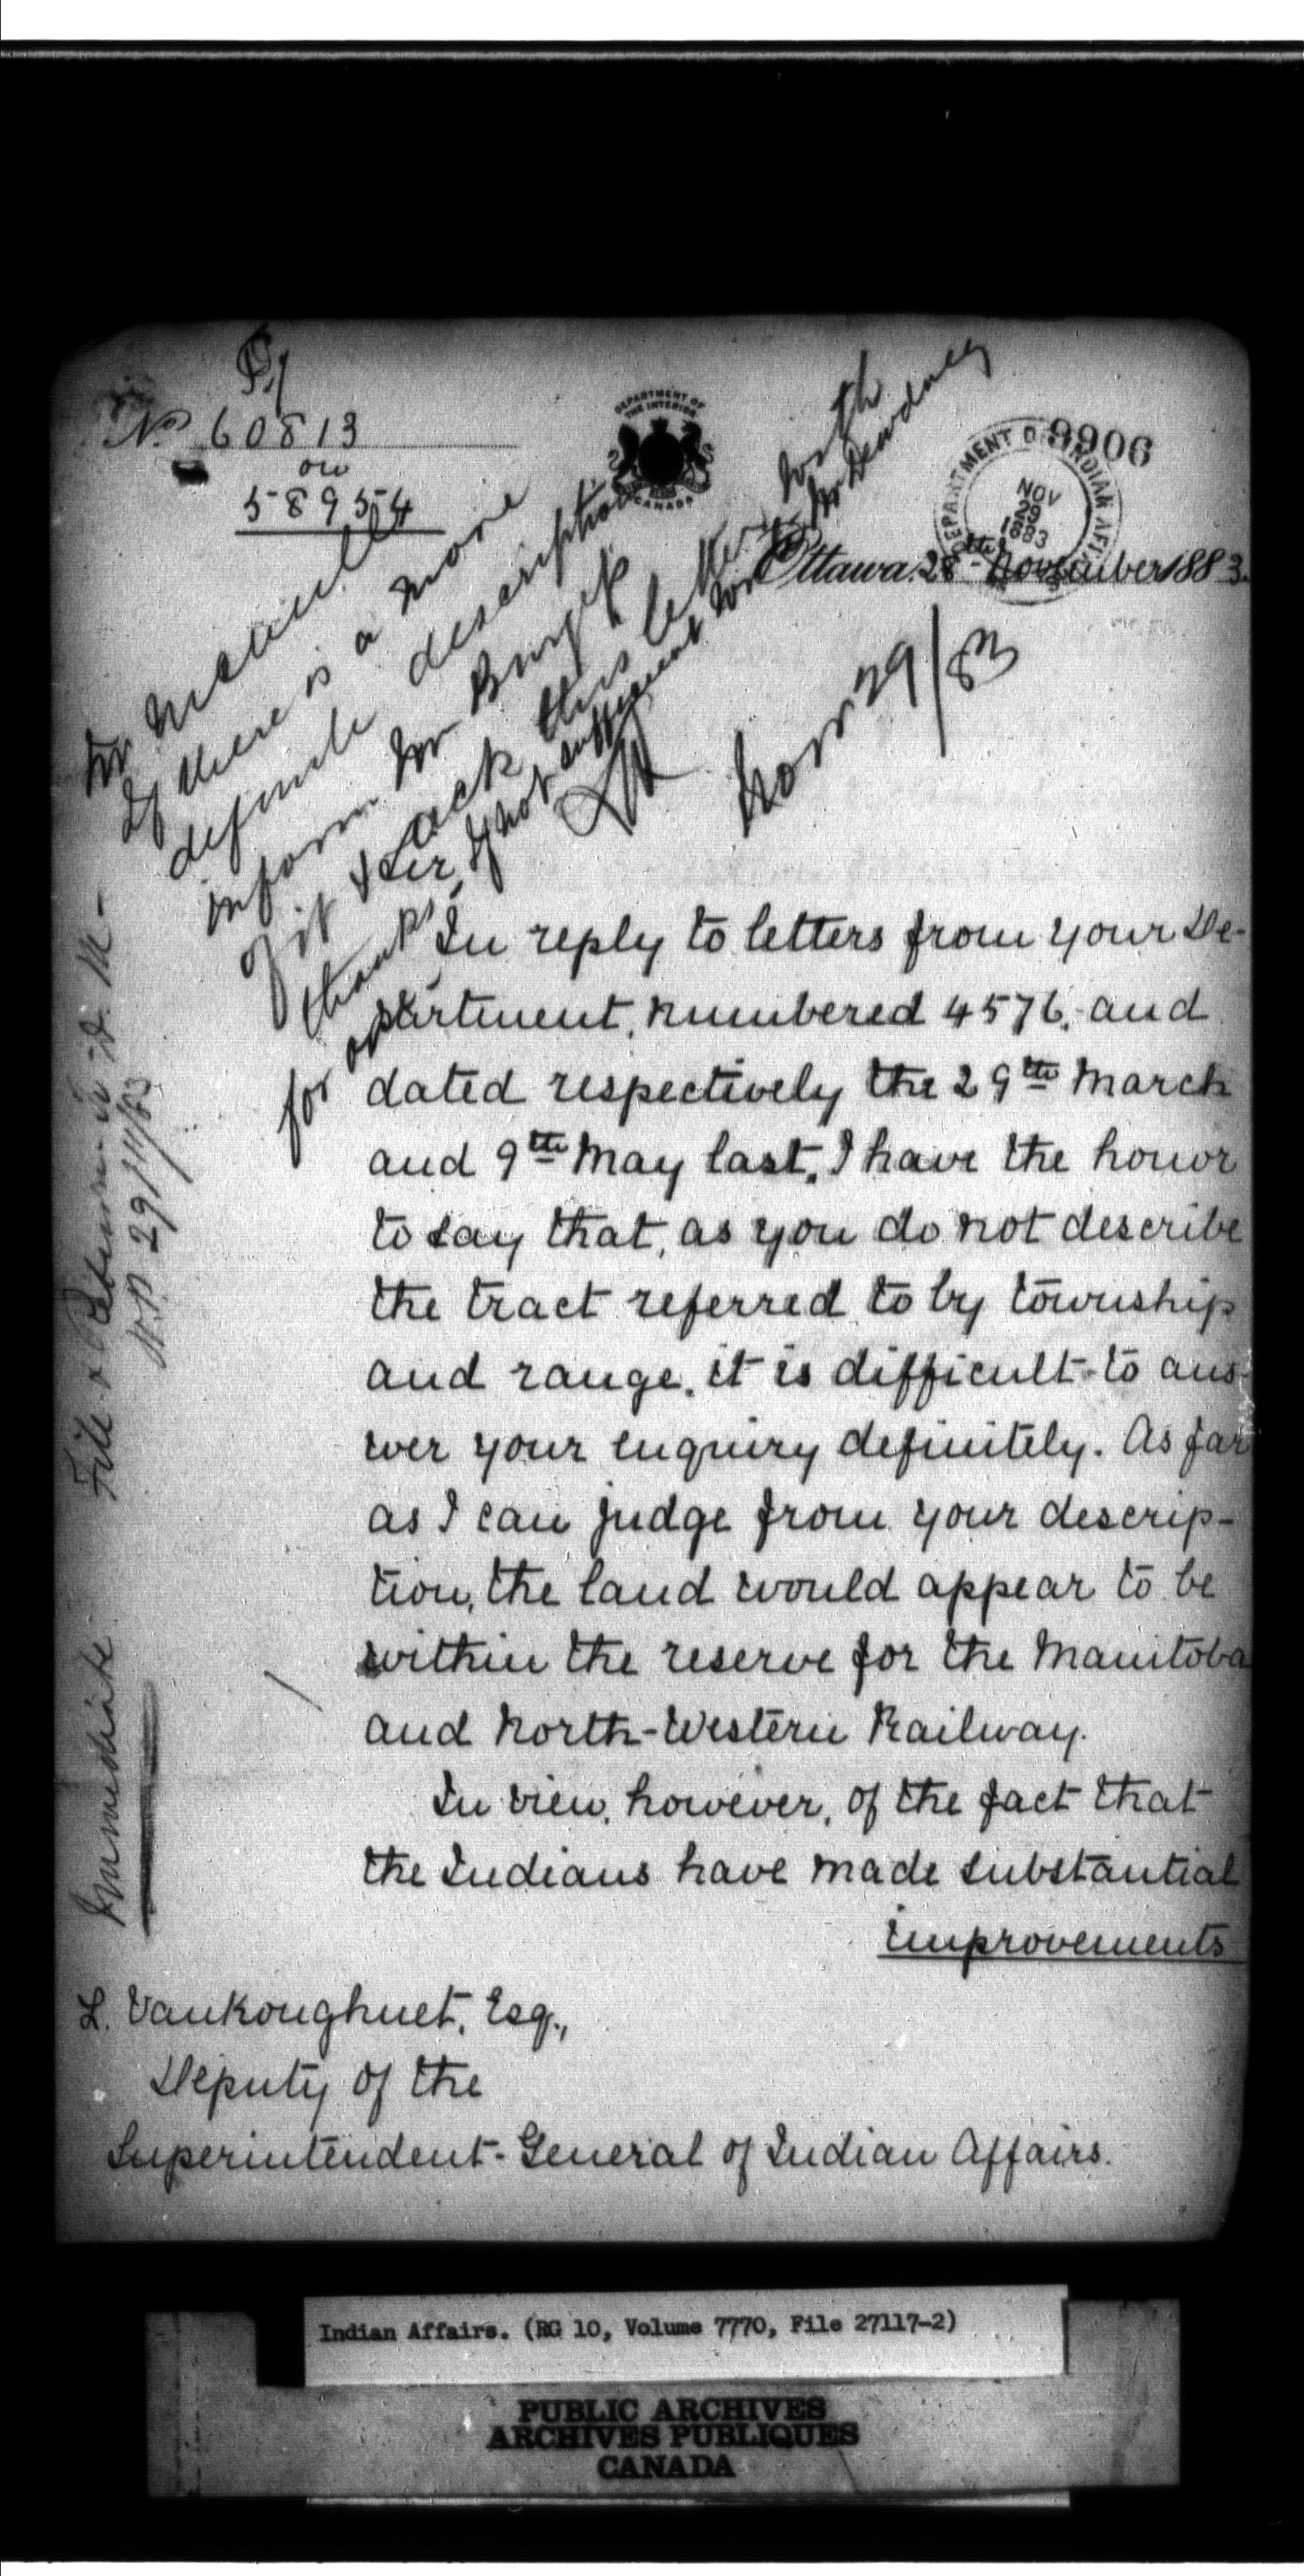 No. 60813
on
58954
DEPARTMENT OF
THE INTERIOR
CANADA
9906
DEPARTMENT OF INDIAN AFFAIRS
NOV
29
1883
Ottawa. 28th November 1883.
If there is a more
definite description
inform Mr Burgess
of it & ack this letter with
thanks. If not sufficient
for
Mr Dewdney
Nov 29/83
Sir,
In reply to letters from your De-
partment, numbered 4576, and
dated respectively the 29th March
and 9th May last, I have the honor
to say that, as you do not describe
the tract referred to by township
and range, it is difficult to ans-
wer your enquiry definitely. As far
as I can judge from your descrip-
tion, the land would appear to be
within the reserve for the Manitoba
and North-Western Railway.
In view, however, of the fact that
the Indians have made substantial
improvements
File & Return to
29/11/83
Immediate
L. Vankoughnet, Esq.,
Deputy of the
Superintendent-General of Indian Affairs.
Indian Affairs. (RG 10, Volume 7770, File 27117-2)
PUBLIC ARCHIVES
ARCHIVES PUBLIQUES
CANADA